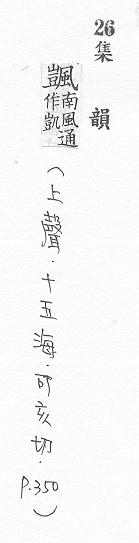 26集韻
颽南風通作凱
（上聲．十五海．可亥切．p.350）